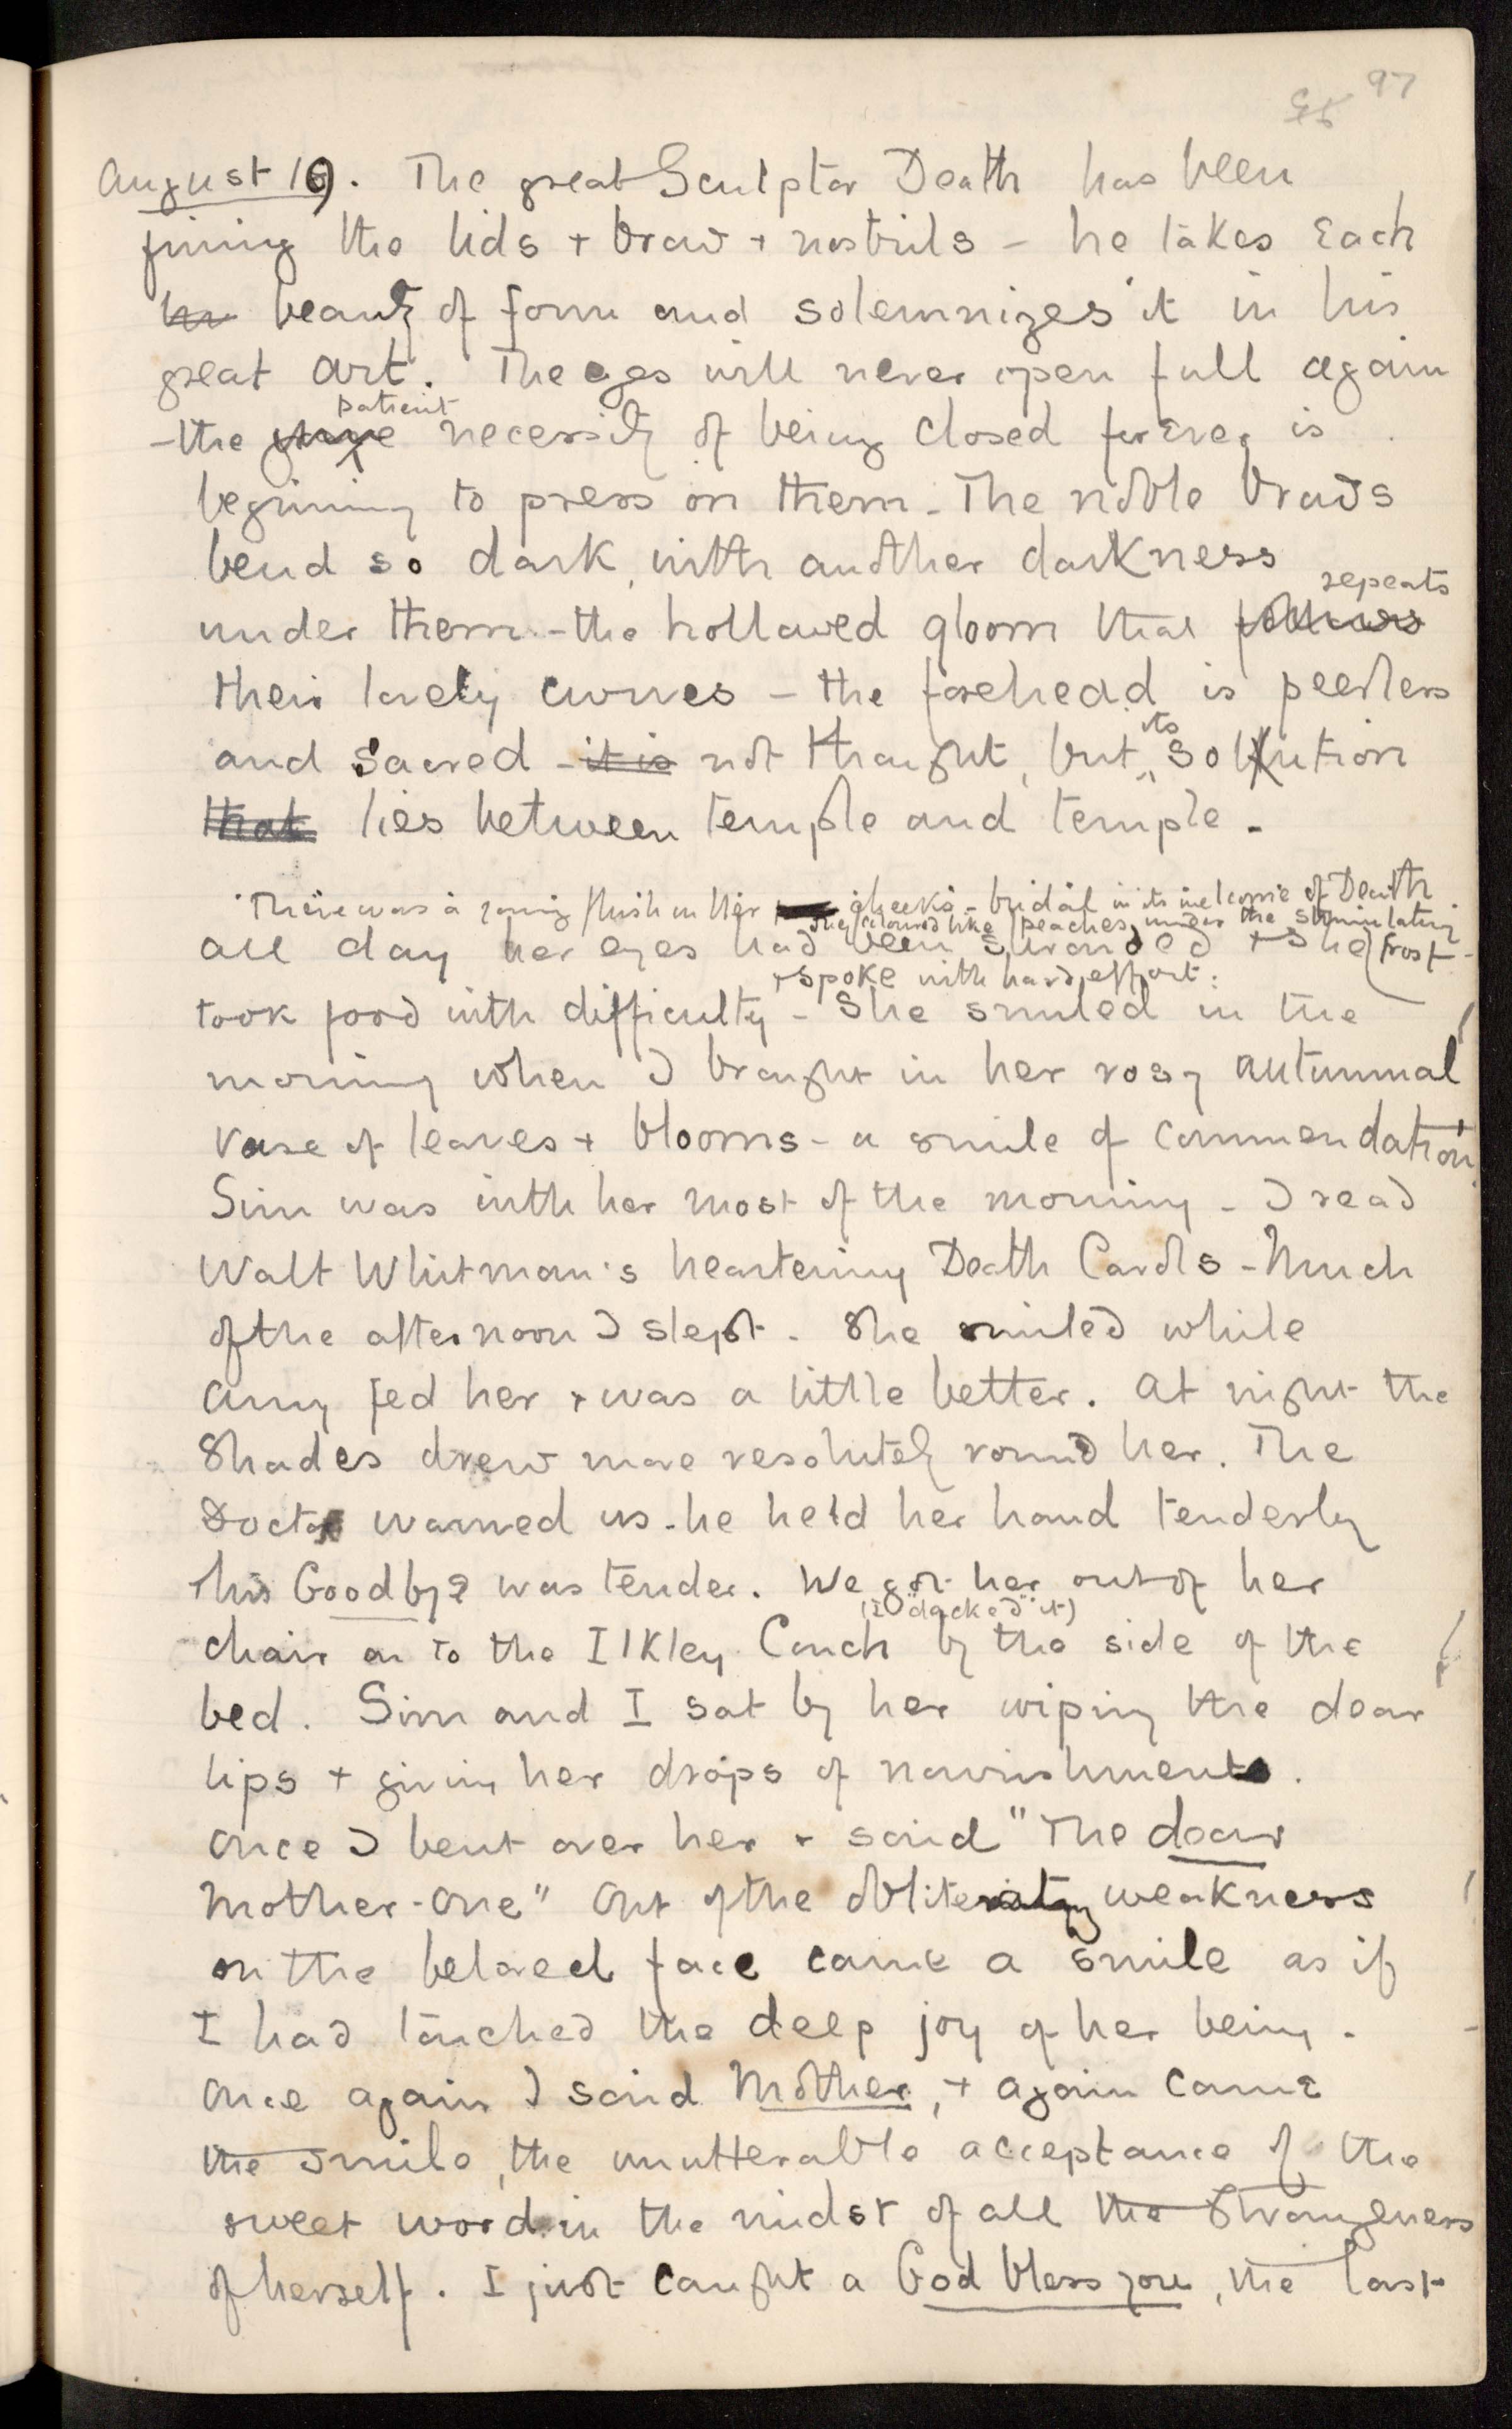 97
95
August 19. The great Sculptor Death has been
fining the lids + brow + nostrils – he takes each
beauty of form and solemnizes it in his
great art. The eyes will never open full again
patient
– the necessity of being closed for ever is
beginning to press on them – The noble brows
bend so dark, with another darkness
repeats
under them – the hollowed gloom that follows
their lovely curves – the forehead is peerless
its
and sacred – it is not thought, but solution
that lies between temple and temple.
There was a young flush on her cheeks – bridal in its welcome of Death
they coloured like peaches under the stimulating
all day her eyes had been shrouded + she frost –
+ spoke with hard effort:
took food with difficulty – She smiled in the
morning when I brought in her rosy autumnal
vase of leaves + blooms – a smile of commendation
Sim was with her most of the morning – I read
Walt Whitman's heartening Death Carols – Much
of the afternoon I slept. She smiled while
Amy fed her + was a little better. At night the
Shades drew more resolutely round her. The
Doctor warned us – he held her hand tenderly
+ his Goodbye was tender. We got her out of her
(I "dacked" it)
chair on to the Ilkley Couch by the side of the
bed. Sim and I sat by her wiping the dear
lips + giving her drops of nourishment.
Once I bent over her + said "The dear
Mother-One" Out of the obliterating weakness
on the beloved face came a smile as if
I had touched the deep joy of her being.
Once again I said Mother, + again came
the smile, the unutterable acceptance of the
sweet word in the midst of all the strangeness
of herself. I just caught a God bless you, the last